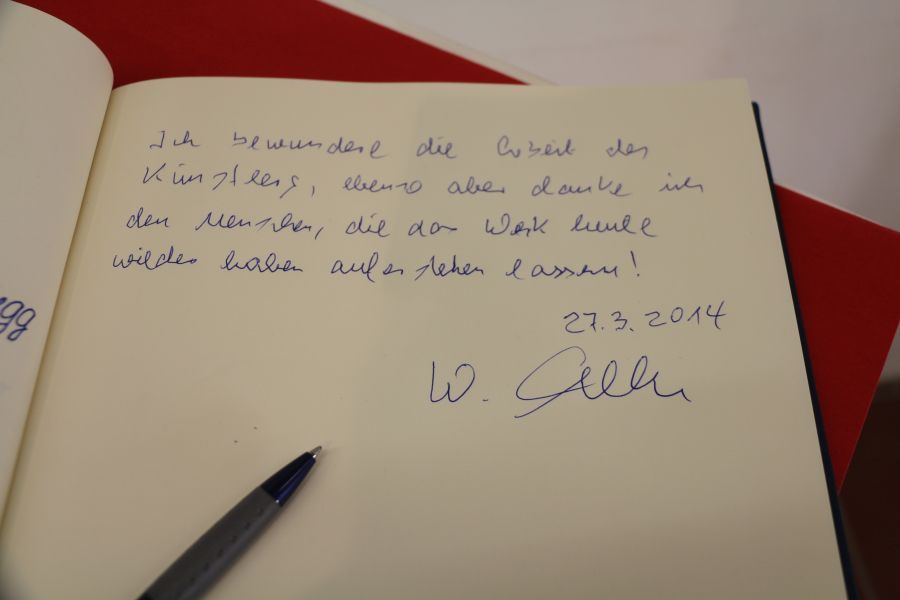 Ich bewundere die Arbeit des
Künstlers, ebenso aber danke ich
den Menschen, die das Werk heute
wieder haben auferstehen lassen!
27.3.2014
W.